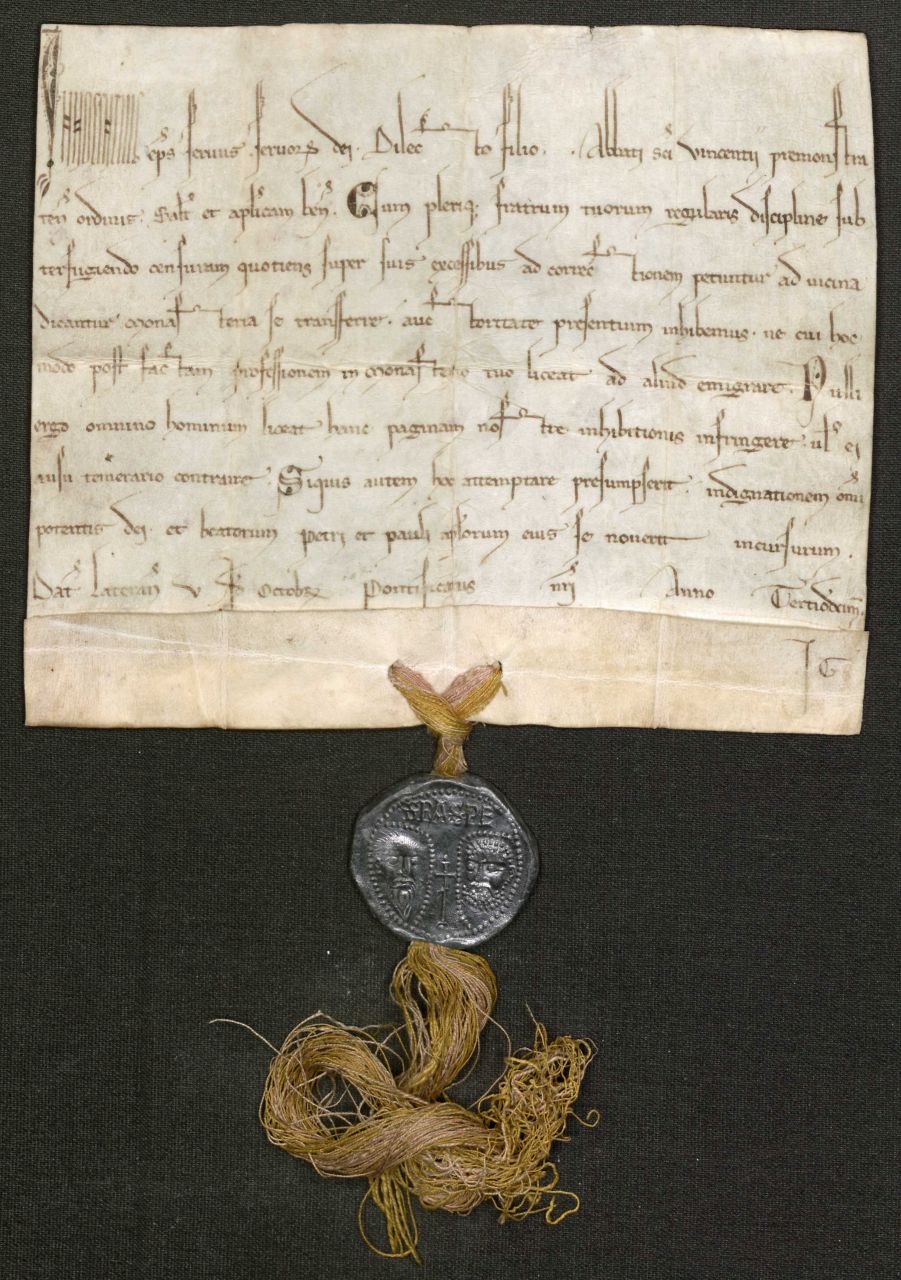 Innocentius ep̄s seruus seruoꝝ dei. Dilecto filio . . Abbati sc̄i vincentii premonstra
ten̄ ordinis. Salt̄ et aplicam ben̄. Cum pleriq; fratrum tuorum regularis discipline sub
terfugiendo censuram quotiens super suis excessibus ad correctionem petuntur ad uicina
dicantur monasteria se transferre. auctoritate presentium inhibemus. ne cui hoc
modo post factam professionem in monasterio tuo liceat ad aliud emigrare. Nulli
ergo omnino hominum liceat hanc paginam nostre inhibitionis infringere. ul̄ ei
ausu temerario contraire. Siquis autem hoc attemptare presumpserit. indignationem omi
potentis dei. et beatorum Petri et pauli aplorum eius se nouerit incursurum.
Dat̄ Lateran̄ v kl̄ Octobr̄ Pontificatus nr̄i Anno Tertiodecim̄.
J G
SPASPE